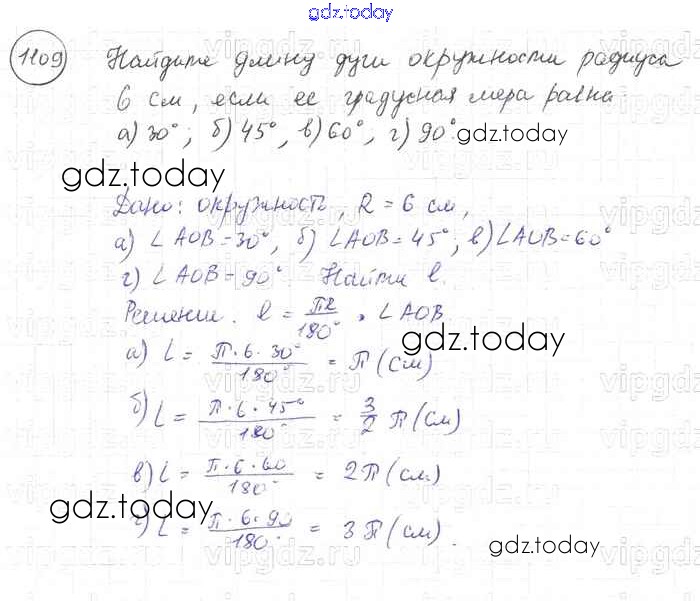 gdz.today
1109 Найдите длину дуги окружности радиуса
6 см, если ее градусная мера равна
а) 30°; б) 45°, в) 60°, г) 90°.
gdz.today
gdz.today
Дано: окружность, R = 6 см,
а) ∠AOB = 30°, б) ∠AOB = 45°, в) ∠AOB = 60°
г) ∠AOB = 90°. Найти ℓ.
Решение. ℓ = ПR/180° · ∠AOB.
gdz.today
а) L = П·6·30°/180° = П (см)
б) L = П·6·45°/180° = 3/2 П (см)
в) L = П·6·60/180° = 2П (см)
gdz.today
г) L = П·6·90/180° = 3П (см).
gdz.today